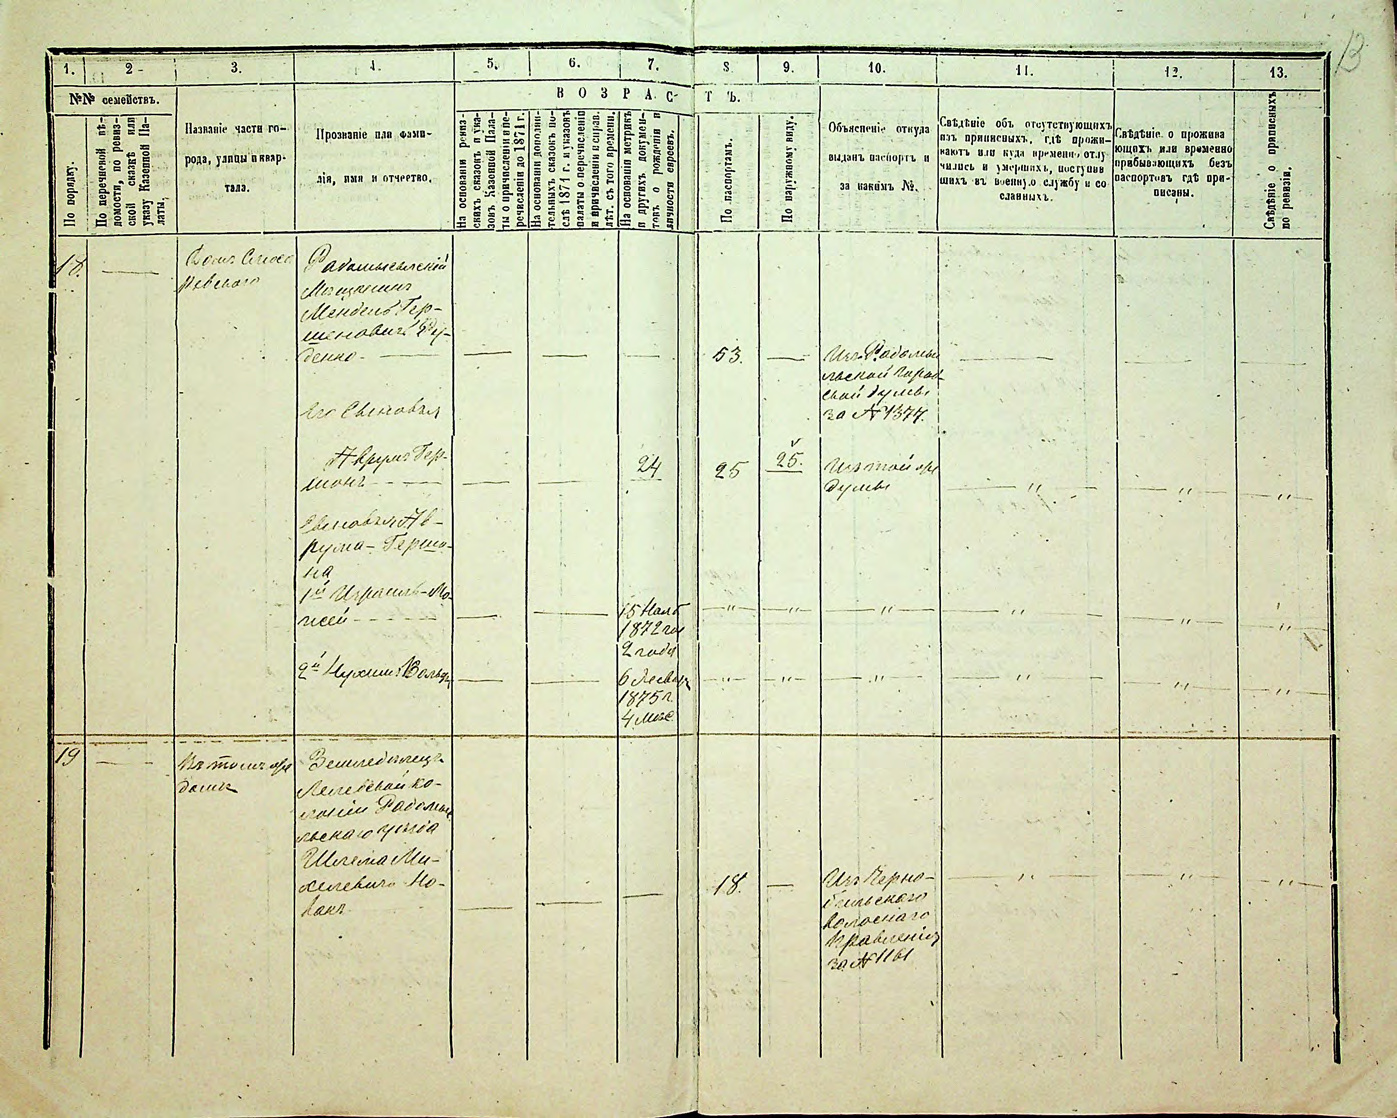 13
1. 2 3. 4. 5. 6. 7. 8 9. 10. 11. 12. 13.
№№ семействъ.
По порядку.
По переписной вѣ-
домости, по ревиз-
ской сказкѣ или
указу Казенной Па-
латы.
Названіе части го-
рода, улицы и квар-
тала.
Прозваніе или фами-
лія, имя и отчество.
ВОЗРАСТЪ.
На основаніи ревиз-
скихъ сказокъ и ука-
зовъ Казенной Пала-
ты о причисленіи и пе-
речисленіи до 1871 г.
На основаніи дополни-
тельныхъ сказокъ по-
слѣ 1871 г. и указовъ
палаты о перечисленіи
и причисленіи и справ.
лѣт. съ того времени.
На основаніи метрикъ
и другихъ докумен-
товъ о рожденіи и
личности евреевъ.
По паспортамъ.
По наружному виду.
Объясненіе откуда
выданъ паспортъ и
за какимъ №.
Свѣдѣніе объ отсутствующихъ
изъ приписныхъ, гдѣ прожи-
ваютъ или куда временно отлу
чились и умершихъ, поступив
шихъ въ военную службу и со
сланныхъ.
Свѣдѣніе о прожива
ющихъ или временно
прибывающихъ безъ
паспортовъ гдѣ при-
писаны.
Свѣдѣніе о приписныхъ
по ревизіи.
18
Домъ
Радомысльскій
Мѣщанинъ
Мендель Гер-
шеновичъ Ру-
денко
53.
Изъ Радомы
льской Город
ской думы
за № 1377.
Его Сыновья
Аврумъ Гер-
шонъ
24
25
25.
Изъ той же
думы
Сыновья Ав-
рума-Гершо-
на
1й Израиль-Мо-
шей
15 Нояб
1872 го
2 года
2й Нухим. Вольф
6
1875 г.
4 мес.
19
Въ томъ же
домѣ
Земледѣлецъ
ко-
лоніи Радомы
льскаго уѣзда
Шлема Ми-
хелевичъ Но-
вакъ
18.
Изъ Черно-
бильскаго
волоснаго
Правленія
за № 1161